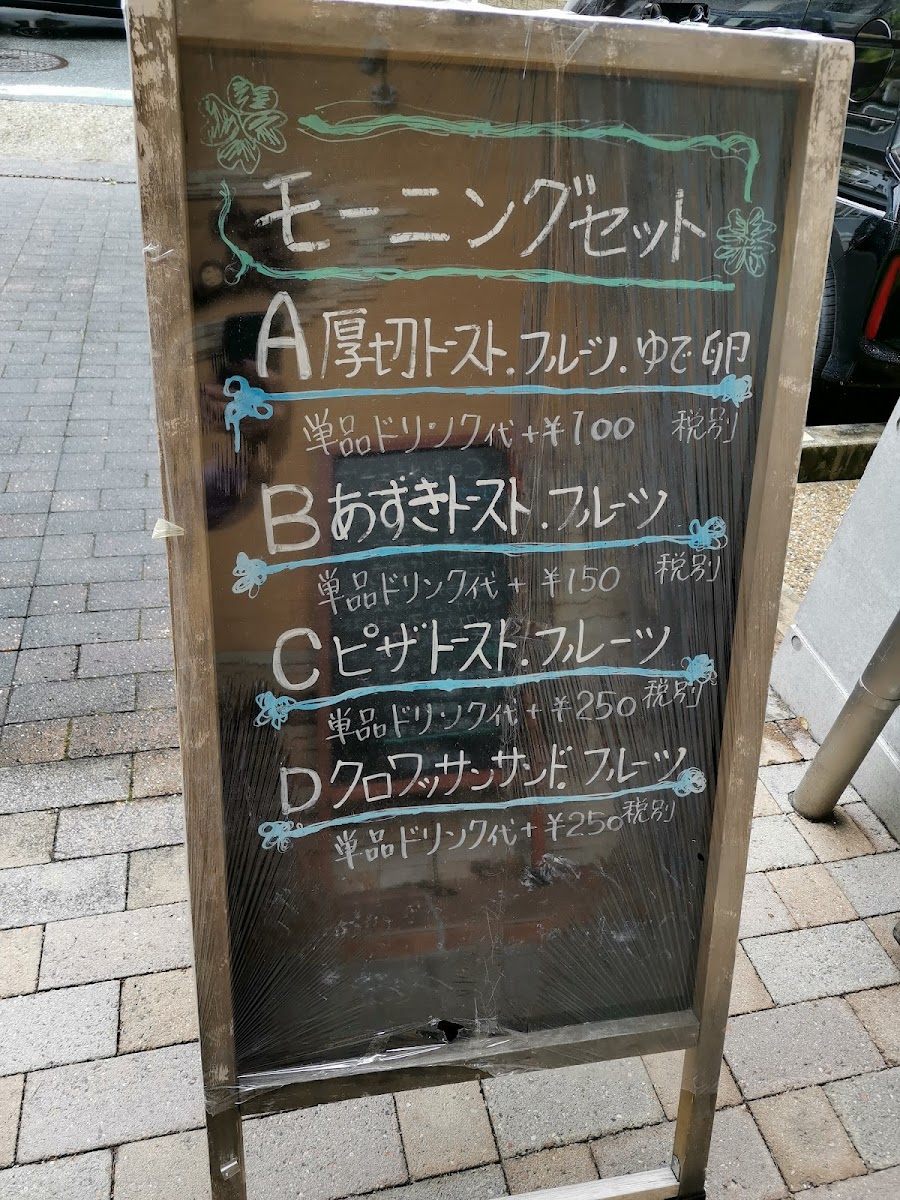 モーニングセット
A 厚切トースト.フルーツ.ゆで卵
単品ドリンク代+¥100 税別
B あずきトースト.フルーツ
単品ドリンク代+¥150 税別
C ピザトースト.フルーツ
単品ドリンク代+¥250 税別
D クロワッサンサンド.フルーツ
単品ドリンク代+¥250 税別